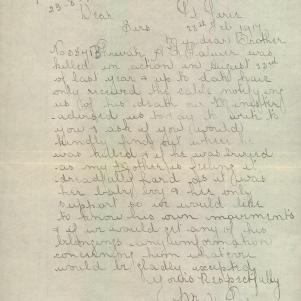 Dear
Sirs
28th Feb 1917
My dear Brother
No 534 Private A. J. was
killed in action in August 22nd
of last year & up to date have
only received the cable notifying
us of his death our Minester
advised us to day to writ to
you & ask if you would
kindly find out where he
was killed & if he was buried
as my Mother is feeling it
dreadfully hard as it was
her baby boy & her only
support so we would like
to know his own movements
& if we would get any of his
belongings any information
concerning him whatever
would be gladly excepted
Yours Respectfully